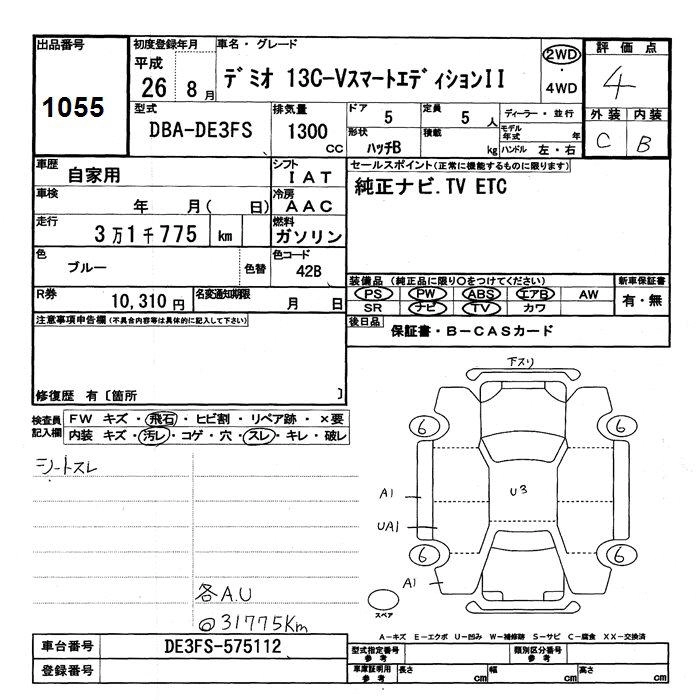 出品番号
1055
初度登録年月
平成
26 8 月
車名・グレード
デミオ 13C-VスマートエディションII
2WD
・
4WD
評価点
4
型式
DBA-DE3FS
排気量
1300 cc
ドア
5
定員
5 人
ディーラー・並行
モデル年式 年
形状
ハッチB
積載
kg
ハンドル 左・右
外装 内装
C B
車歴
自家用
シフト
IAT
セールスポイント(正常に機能するものに限ります)
純正ナビ.TV ETC
車検
年 月( 日)
冷房
AAC
走行
3万1千775 km
燃料
ガソリン
色
ブルー
色替
色コード
42B
R券
10,310円
名変通知期限
月 日
装備品 (純正品に限り○をつけてください)
新車保証書
PS PW ABS エアB AW
SR ナビ TV カワ
有・無
注意事項申告欄(不具合内容等は具体的に記入して下さい)
後日品
保証書・B-CASカード
修復歴 有〔箇所 〕
検査員記入欄
FW キズ・飛石・ヒビ割・リペア跡・×要
内装 キズ・汚レ・コゲ・穴・スレ・キレ・破レ
シートスレ
各A.U
◎31775Km
下スリ
6 6
A1
U3
UA1
6 6
A1
スペア
A-キズ E-エクボ U-凹み W-補修跡 S-サビ C-腐食 XX-交換済
車台番号
DE3FS-575112
登録番号
型式指定番号
参考
類別区分番号
参考
車庫証明用
参考
長さ cm
幅 cm
高さ cm